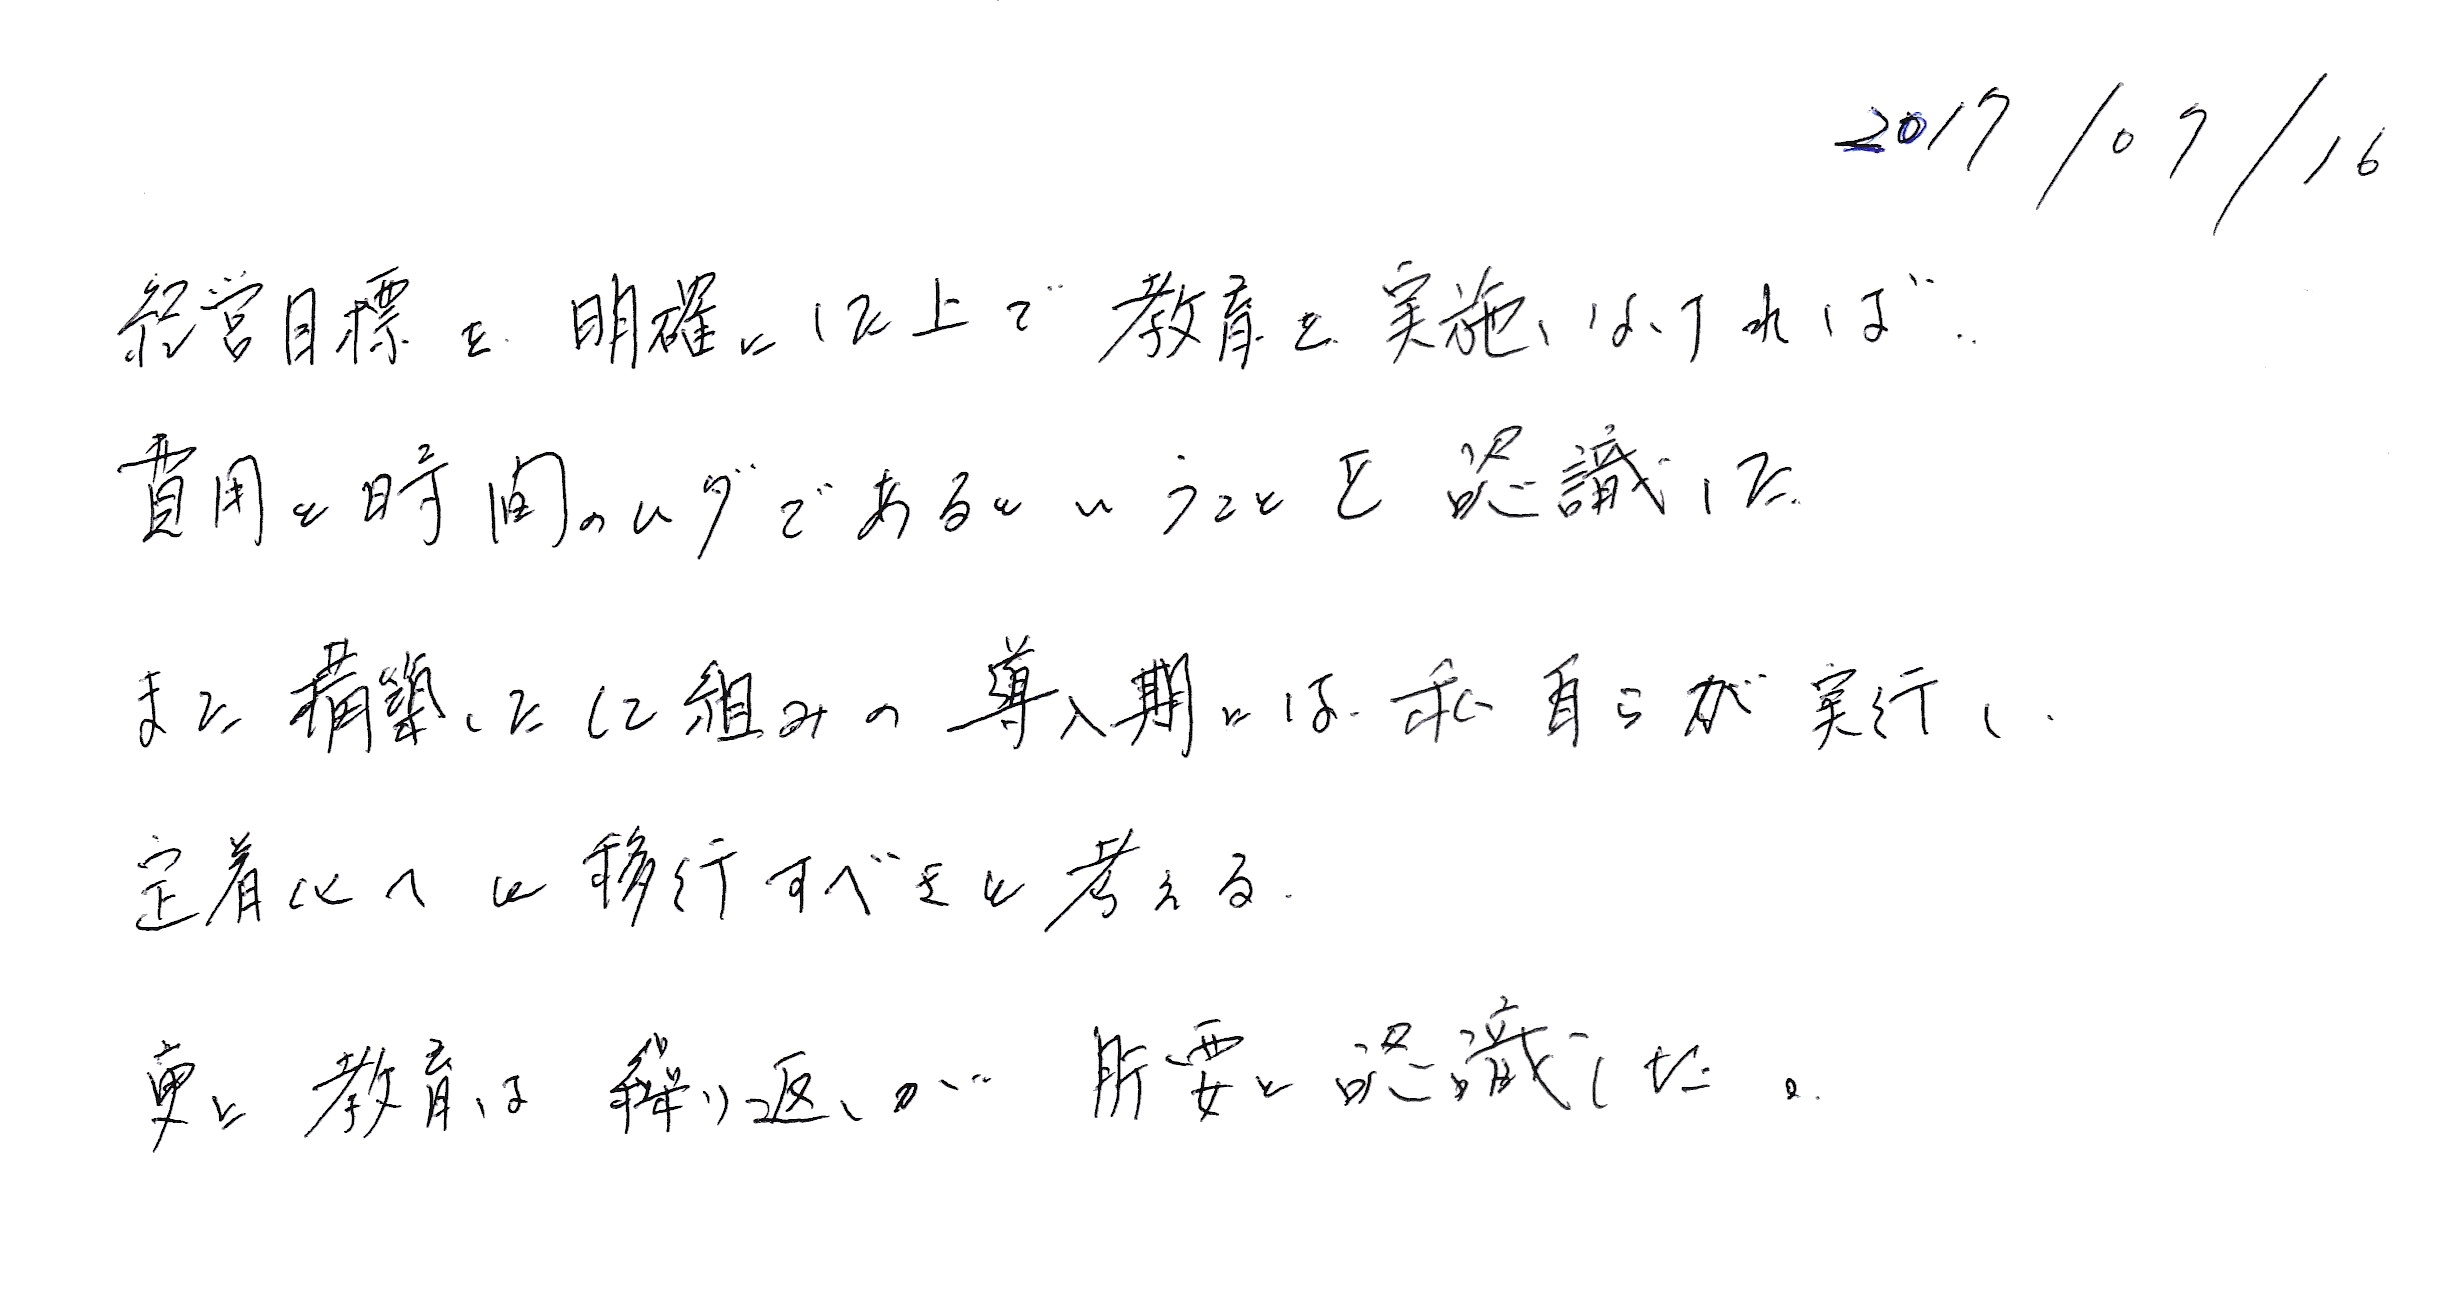 2017/07/16
経営目標を明確にした上で教育を実施しなければ、
費用と時間のムダであるということを認識した
また構築した仕組みの導入期には私自らが実行し、
定着化へと移行すべきと考える.
更に教育は繰り返しが肝要と認識した。